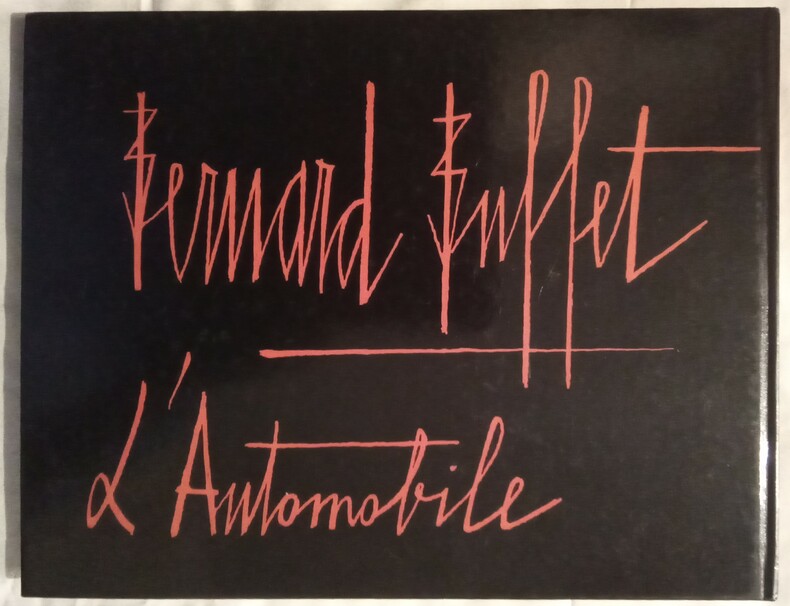 Bernard Buffet
L'Automobile